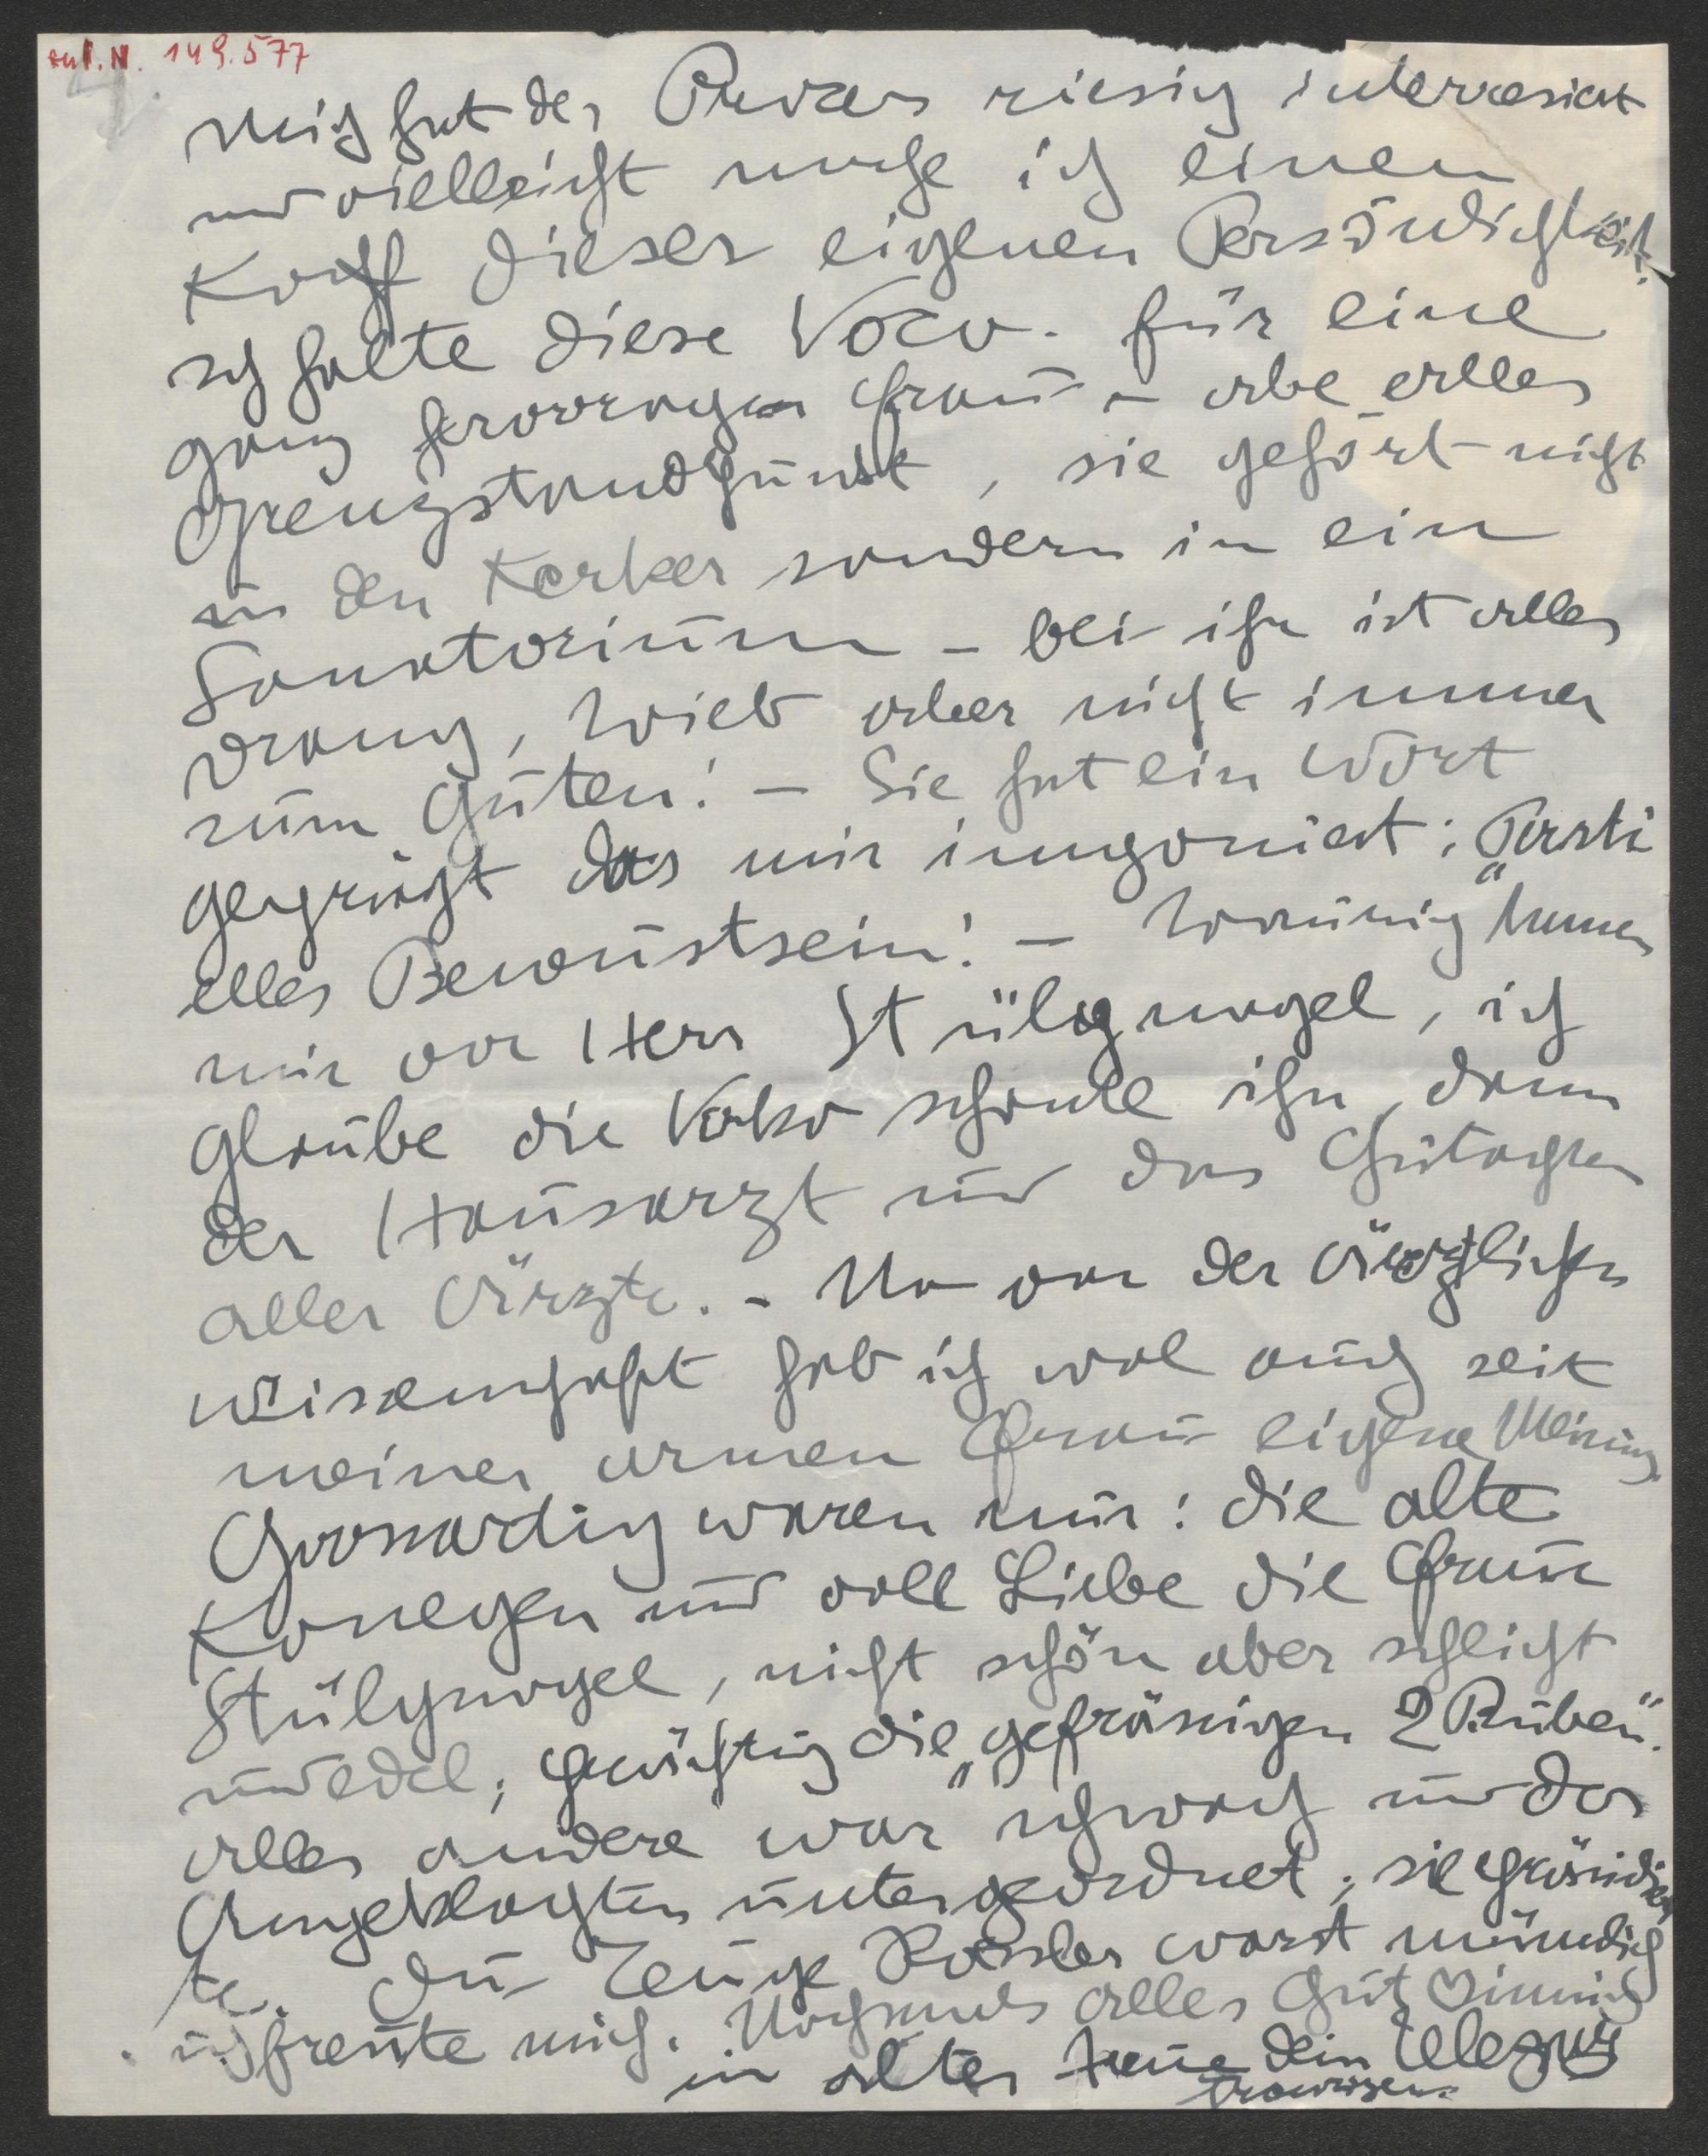 4.
Mich hat der Prozes riesig interresiert
und vielleicht mache ich einen
Kopf dieser eigenen Persönlichkeit.
Ich halte diese für eine
ganz Frau – alles
Grenzstandpunkt, sie gehört nicht
in den Kerker sondern in ein
Sanatorium – bei ihr ist alles
Drang, Trieb aber nicht immer
zum Guten! – Sie hat ein Wort
geprägt das mir imponiert: „Persti
elles Bewustsein! –
mir vor Herr Stülpnagel, ich
glaube die ihn, dann
der Hausarzt und das Gutachten
aller Ärzte. – Na von der ärztlichen
Wisenschaft hab ich wol auch seit
meiner armen Frau eigene Meinung.
Grosartig waren nur: die alte
Konegen und voll Liebe die Frau
Stülpnagel, nicht schön aber schlicht
und edel; die „gefräsigen 2 Buben".
alles andere war schwach und der
Angeklagten untergeordnet; sie
te. Du Zeuge Roessler warst mündlich
ich freute mich. Nochmals alles Gute innig
in alter Treue dein